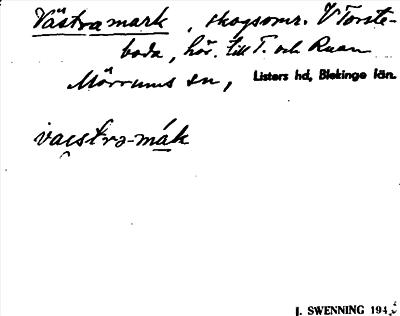 Västra mark, skogsomr. V Torste-
boda, hör. till T. och Ruan
Mörrums sn, Listers hd, Blekinge län.
væstrə-mák
J. SWENNING 194